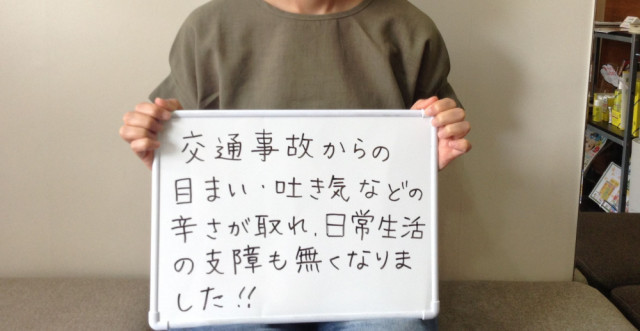 交通事故からの
目まい・吐き気などの
辛さが取れ、日常生活
の支障も無くなりま
した!!